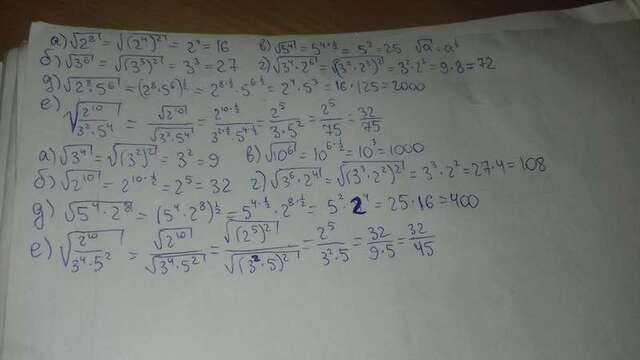 а) √2⁸ = √(2⁴)² = 2⁴ = 16 в) √5⁴ = 5^(4·½) = 5² = 25 √a = a^½
б) √3⁶ = √(3³)² = 3³ = 27 г) √3⁴·2⁶ = √(3²·2³)² = 3²·2³ = 9·8 = 72
д) √2⁸·5⁶ = (2⁸·5⁶)^½ = 2^(8·½)·5^(6·½) = 2⁴·5³ = 16·125 = 2000
е) √(2¹⁰/(3²·5⁴)) = √2¹⁰/√(3²·5⁴) = 2^(10·½)/(3^(2·½)·5^(4·½)) = 2⁵/(3·5²) = 2⁵/75 = 32/75
а) √3⁴ = √(3²)² = 3² = 9 в) √10⁶ = 10^(6·½) = 10³ = 1000
б) √2¹⁰ = 2^(10·½) = 2⁵ = 32 г) √3⁶·2⁴ = √(3³·2²)² = 3³·2² = 27·4 = 108
д) √5⁴·2⁸ = (5⁴·2⁸)^½ = 5^(4·½)·2^(8·½) = 5²·2⁴ = 25·16 = 400
е) √(2¹⁰/(3⁴·5²)) = √2¹⁰/√(3⁴·5²) = √(2⁵)²/√(3²·5)² = 2⁵/(3²·5) = 32/(9·5) = 32/45